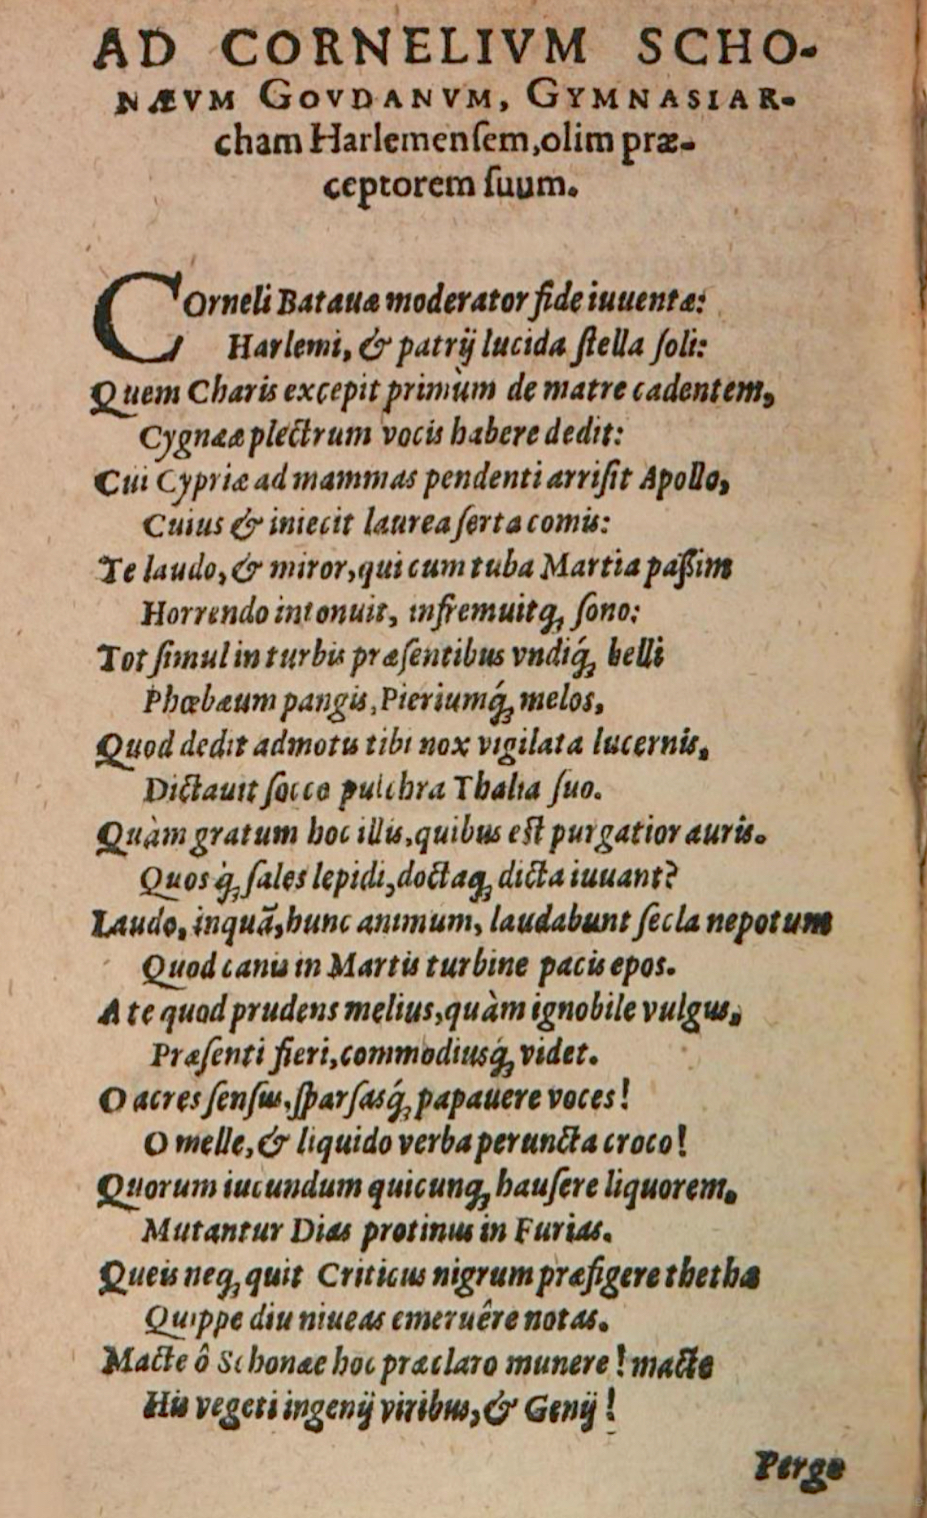 AD CORNELIVM SCHO-
NÆVM GOVDANVM, GYMNASIAR-
cham Harlemenſem, olim præ-
ceptorem ſuum.
COrneli Batauæ moderator fide iuuentæ:
Harlemi, & patrij lucida ſtella ſoli:
Quem Charis excepit primùm de matre cadentem,
Cygnææ plectrum vocis habere dedit:
Cui Cypriæ ad mammas pendenti arriſit Apollo,
Cuius & iniecit laurea ſerta comis:
Te laudo, & miror, qui cum tuba Martia paßim
Horrendo intonuit, infremuitq́; ſono:
Tot ſimul in turbis præſentibus vndiq́; belli
Phœbæum pangis, Pieriumq́; melos,
Quod dedit admotis tibi nox vigilata lucernis,
Dictauit ſocco pulchra Thalia ſuo.
Quàm gratum hoc illis, quibus eſt purgatior auris.
Quosq́; ſales lepidi, doctaq; dicta iuuant?
Laudo, inquã, hunc animum, laudabunt ſecla nepotum
Quod canis in Martis turbine pacis epos.
A te quod prudens melius, quàm ignobile vulgus,
Præſenti fieri, commodiusq́; videt.
O acres ſenſus, ſparſasq́; papauere voces!
O melle, & liquido verba peruncta croco!
Quorum iucundum quicunq; hauſere liquorem,
Mutantur Dias protinus in Furias.
Queis neq; quit Criticus nigrum præfigere thetha
Quippe diu niueas emeruêre notas.
Macte ô Schonæe hoc præclaro munere! macte
His vegeti ingenij viribus, & Genij!
Perge